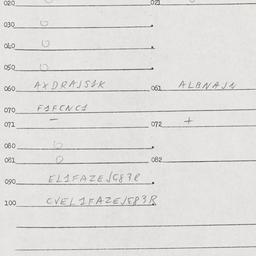 020 021
030 U
040 U
050 U
060 AXDRAJS1K 061 ALBNAJN
070 F1FCNC1
071 - 072 +
080
081 0 082
090 EL1FAZEJG87R
100 CVEL1FAZEJG83R